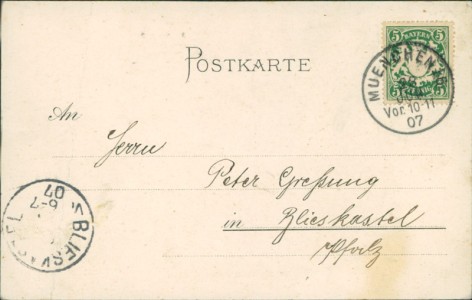 POSTKARTE
5 BAYERN 5
5 PFENNIG 5
MUENCHEN
Vor. 10-11
07
An
Herrn
Peter Greßung
in Blieskastel
Pfalz
BLIESKASTEL
6-7
07